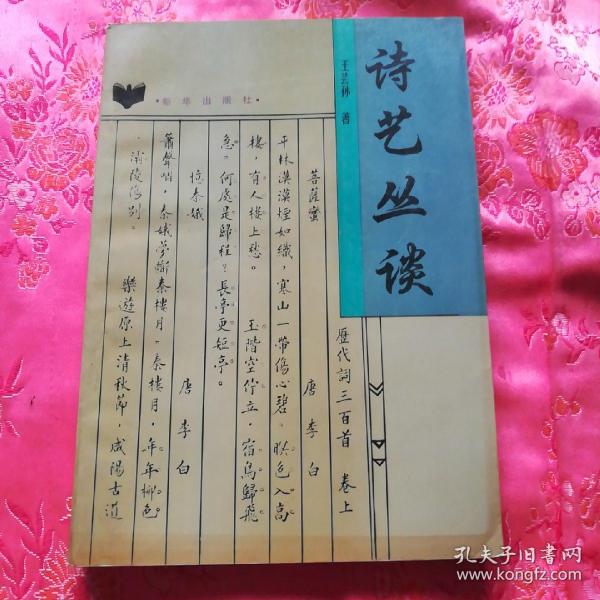 诗艺丛谈
王芸孙 著
·新华出版社·
歷代詞三百首 卷上
菩薩蠻 唐 李白
平林漠漠煙如織，寒山一帶傷心碧。暝色入高
樓，有人樓上愁。 玉階空佇立，宿鳥歸飛
急。何處是歸程？長亭更短亭。
憶秦娥 唐 李白
簫聲咽，秦娥夢斷秦樓月。秦樓月，年年柳色
，灞陵傷別。 樂遊原上清秋節，咸陽古道
孔夫子旧书网
www.kongfz.com